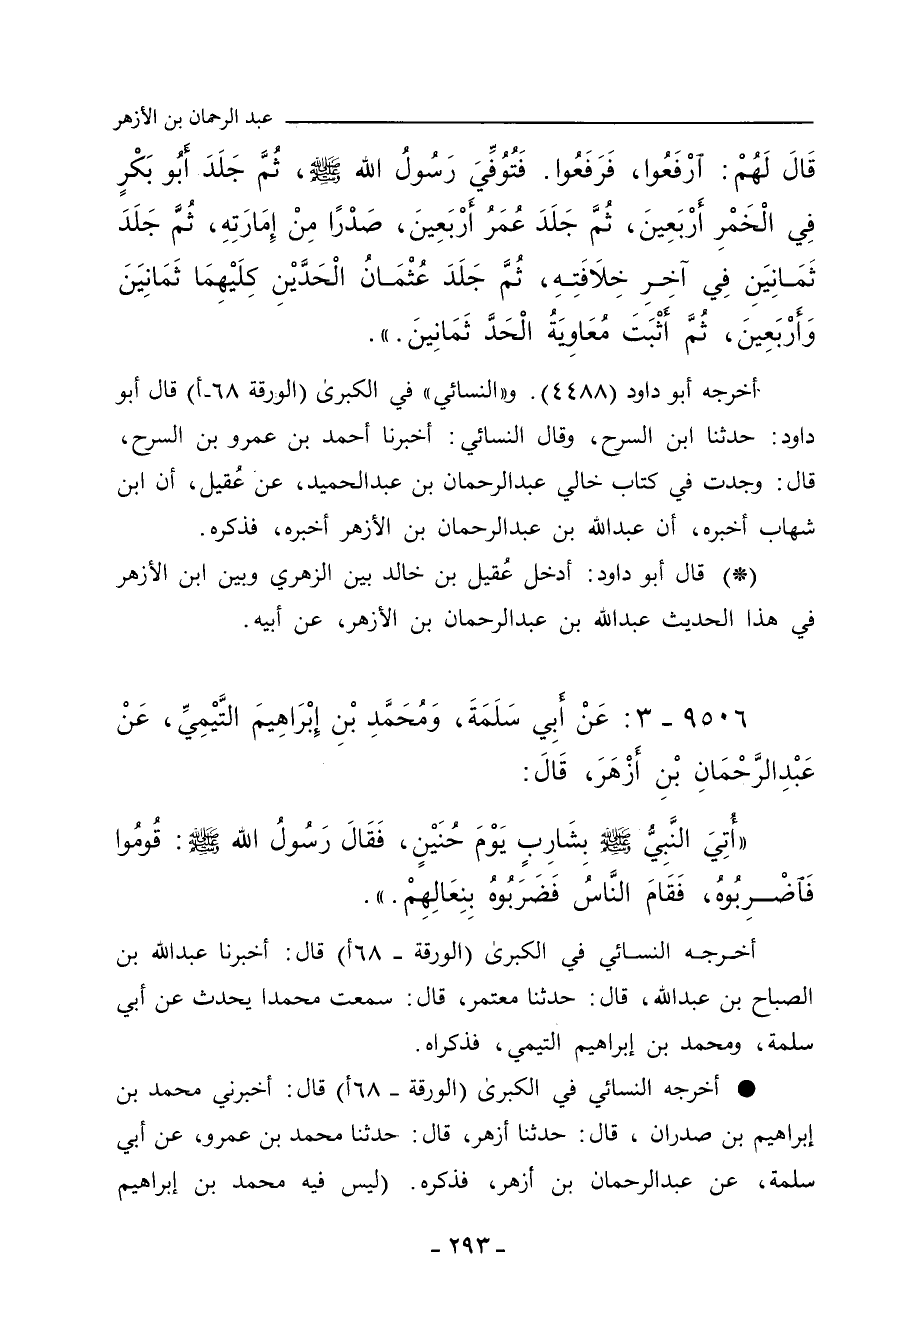 عبد الرحمان بن الأزهر
قَالَ لَهُمْ : ٱرْفَعُوا، فَرَفَعُوا. فَتُوُفِّيَ رَسُولُ الله ﷺ، ثُمَّ جَلَدَ أَبُو بَكْرٍ
فِي الْخَمْرِ أَرْبَعِينَ، ثُمَّ جَلَدَ عُمَرُ أَرْبَعِينَ، صَدْرًا مِنْ إِمَارَتِهِ، ثُمَّ جَلَدَ
ثَمَــانِيَن فِي آخِــرِ خِلَافَتِــهِ، ثُمَّ جَلَدَ عُثْمَــانُ الْحَدَّيْنِ كِلَيْهِمَا ثَمَانِينَ
وَأَرْبَعِينَ، ثُمَّ أَثْبَتَ مُعَاوِيَةُ الْحَدَّ ثَمَانِينَ.».
أخرجه أبو داود (٤٤٨٨). و«النسائي» في الكبرىٰ (الورقة ٦٨-أ) قال أبو
داود: حدثنا ابن السرح، وقال النسائي: أخبرنا أحمد بن عمرو بن السرح،
قال: وجدت في كتاب خالي عبدالرحمان بن عبدالحميد، عن عُقيل، أن ابن
شهاب أخبره، أن عبدالله بن عبدالرحمان بن الأزهر أخبره، فذكره.
(*) قال أبو داود: أدخل عُقيل بن خالد بين الزهري وبين ابن الأزهر
في هذا الحديث عبدالله بن عبدالرحمان بن الأزهر، عن أبيه.
٩٥٠٦ - ٣: عَنْ أَبِي سَلَمَةَ، وَمُحَمَّدِ بْنِ إِبْرَاهِيمَ التَّيْمِيِّ، عَنْ
عَبْدِالرَّحْمَانِ بْنِ أَزْهَرَ، قَالَ:
«أُتِيَ النَّبِيُّ ﷺ بِشَارِبٍ يَوْمَ حُنَيْنٍ، فَقَالَ رَسُولُ الله ﷺ: قُومُوا
فَٱضْــرِبُوهُ، فَقَامَ النَّاسُ فَضَرَبُوهُ بِنِعَالِهِمْ.».
أخـرجـه النسـائي في الكبرىٰ (الورقة - ٦٨أ) قال: أخبرنا عبدالله بن
الصباح بن عبدالله، قال: حدثنا معتمر، قال: سمعت محمدا يحدث عن أبي
سلمة، ومحمد بن إبراهيم التيمي، فذكراه.
● أخرجه النسائي في الكبرىٰ (الورقة - ٦٨أ) قال: أخبرني محمد بن
إبراهيم بن صدران ، قال: حدثنا أزهر، قال: حدثنا محمد بن عمرو، عن أبي
سلمة، عن عبدالرحمان بن أزهر، فذكره. (ليس فيه محمد بن إبراهيم
- ٢٩٣ -